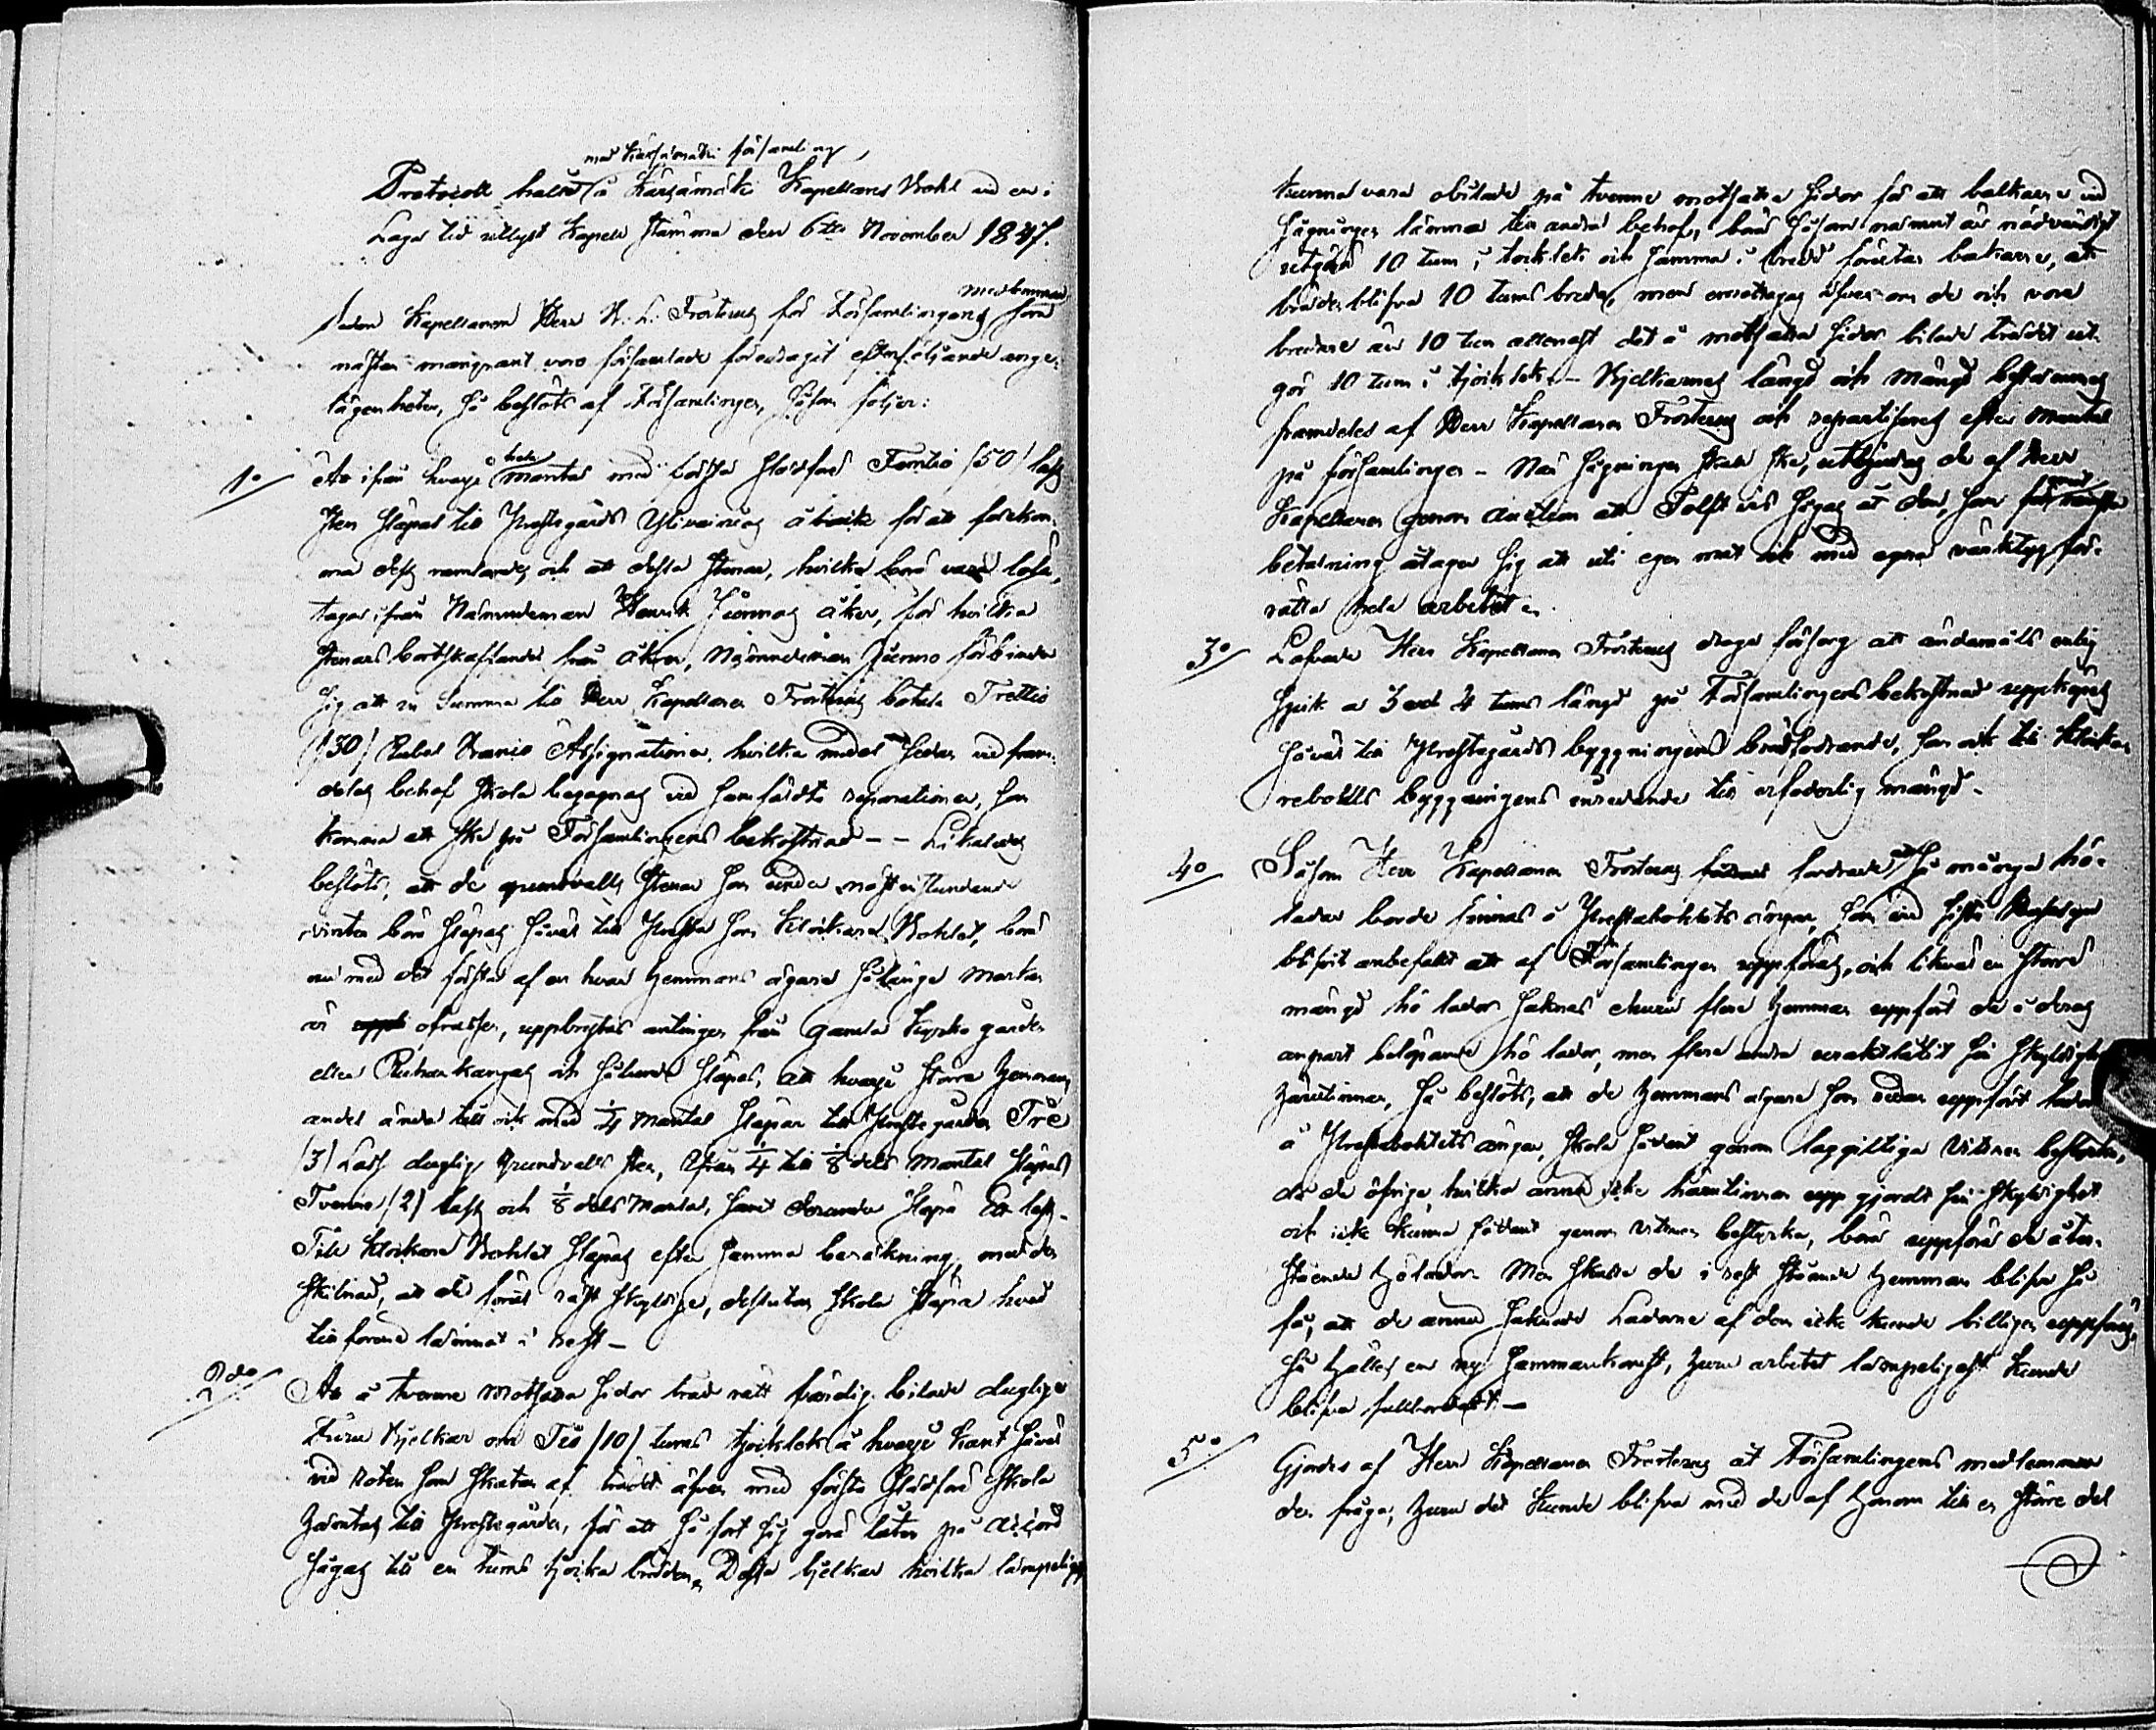 med Kärsämäki församling,
Protocoll hållit å Kärsämäki Kapellans Bohl vid en i
Laga tid utlyst Kapell stämma den 6te November 1847.
medlemmar
Sedan Kapellanen Herr N. L. Frosterus för Församlingens som
nästan mangrant voro församlade föredragit efterföljande ange-
lägenheter, så beslöts af Församlingen, såsom följer:
1o Att ifrån hvarje hela mantal med första slädföre Femtio /50/ lass
sten släpas till Prestegårds åbrädd för att förekom-
ma dess ramlande, och att dessa stenar, hvilka böra vara lösa,
tagas ifrån Nämndeman Henrik åker, för hvilka
stenars bortskaffande från åkren, Nämndeman förbinder
sig att en Summa till Herr Kapellanen Frosterus betala Trettio
/30/ Rubel Banco Assignationer, hvilka medel sedan vid fram-
deles behof skola begagnas vid reparationer, som
komma att ske på Församlingens bekostnad – – Likaledes
beslöts, att de grundvalls stenar som under nästvistundande
vinter böra släpas såväl till Prest som Klockare Bohlet, böra
nu med det första af en hvar hemmans ägare så länge marken
är ofrusen, uppbrytas antingen från gamla Kyrko gården
eller Ruhankangas och sålunda släpas, att hvarje större hemmans
andel ända till och med 1/4 mantal släpar till Prestegården Tre
/3/ Lass duglig Grundvalls sten, ifrån 1/4 till 1/8 dels mantal släpas
Tvenne /2/ lass och 1/8 dels mantal, samt derunder släpa Ett lass –
Till Klockare Bohlet släpas efter samma beräkning, med den
skilnad, att de förut rest skyldige, dessutom skola släpa hvad
till förene lemnat i rest –
2do Att å tvenne motsatta sidor träd rätt färdig bilade duglige
Furu Bjelkar om Tio /10/ tums tjocklek å hvarje kant såväl
vid roten som skatan af trädet äfven med första slädföre skola
hämtas till Prestegården, för att så fort sig göra låter på accord
sågas till en tums tjocka bräder. Dessa bjelkar hvilka lämpeligen
kunna vara obilade på tvenne motsatta sidor för att balkarne vid
sågningen lämna till andra behof, böra såsom nämnt är nödvändigt
utgöra 10 tum i tjocklek och samma i bredd förutan barkarne, att
bräden blifva 10 tums breda, men emottagas äfven om de och vore
bredare än 10 tum allenast det å motsatta sidor bilade trädet ut-
gör 10 tum i tjocklek. – Bjelkarnes längd och mängd bestämmes
framdeles af Herr Kapellanen Frosterus och repartiseras efter mantal
på församlingen – När sågningen skall ske, utbjudes de af Herr
Kapellanen genom auction att Tolft vis sågas åt den, som för minsta
betalning åtager sig att uti egen mat och med egna värktyg för-
rätta hela arbetet.
3o Lofvade Herr Kapellanen Frosterus draga försorg att ändamåls enlig
spik a 3 och 4 tums längd på Församlingens bekostnad uppköpes
såväl till Prestegårds byggningens brädfodrande, som och till Klocka-
rebohlls byggningens inredande till erfoderlig mängd –
4o Såsom Herr Kapellanen Frosterus fordrade, att så många hö-
lador borde finnas å Prestabohlets ängar, som vid sista Husesyn
blifvit anbefaldt att af Församlingen uppföras, och likväl en större
mängd hö lador saknas ehuru flere hemman uppfört de å deras
anpart belöpande hö lador, men flere andra uraktlåtit sin skyldighet
härutinnan, så beslöts, att de hemmans ägare som redan uppfört lador
å Prestabohlets ängar, skola sådant genom laggiltiga Vittnen bestyrka,
då de öfrige, hvilka ännu icke härutinnan upp gjordt sin skyldighet
och icke kunna sådant genom vittnen bestyrka, böra uppföra de åter-
stående hölador. Men skulle de i rest stående hemman blifva så
få, att de ännu saknade Ladorne af dem icke kunde billigen uppföras,
så hålles en ny sammankomst, huru arbetet lämpeligast kunde
blifva fullbordadt. –
5o Gjordes af Herr Kapellanen Frosterus åt Församlingens medlemmar
den fråga, huru det kunde blifva med de af honom till en större del